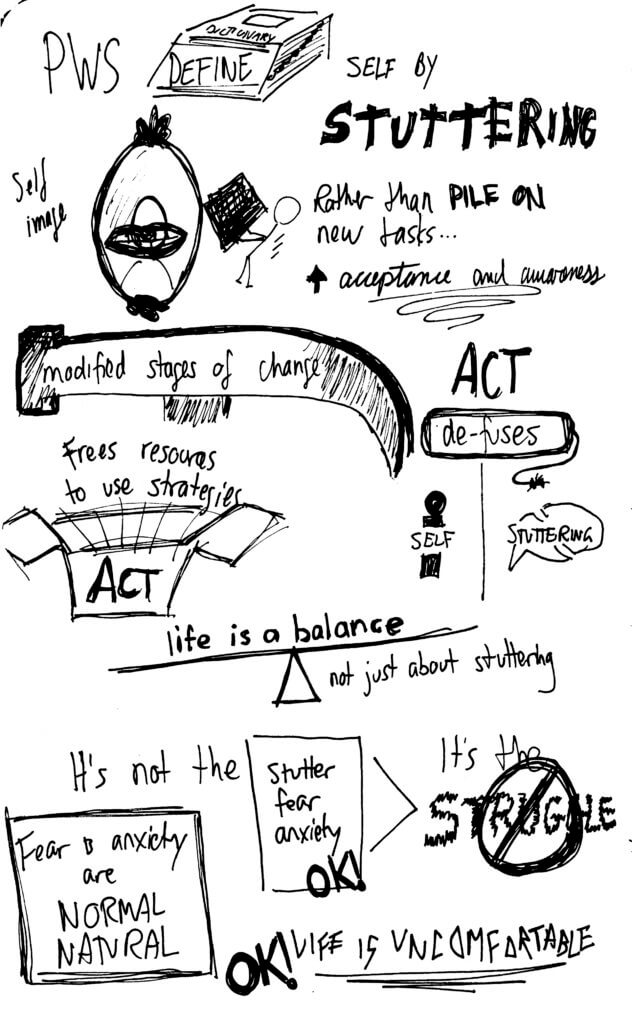 PWS
DICTIONARY
DEFINE
SELF BY
STUTTERING
Self
image
Rather than PILE ON
new tasks...
acceptance and awareness
modified stages of change
ACT
de-fuses
SELF
STUTTERING
Frees resources
to use strategies
ACT
life is a balance
not just about stuttering
It's not the
Stutter
fear
anxiety
OK!
It's the
STRUGGLE
Fear & anxiety
are
NORMAL
NATURAL
OK! LIFE IS UNCOMFORTABLE